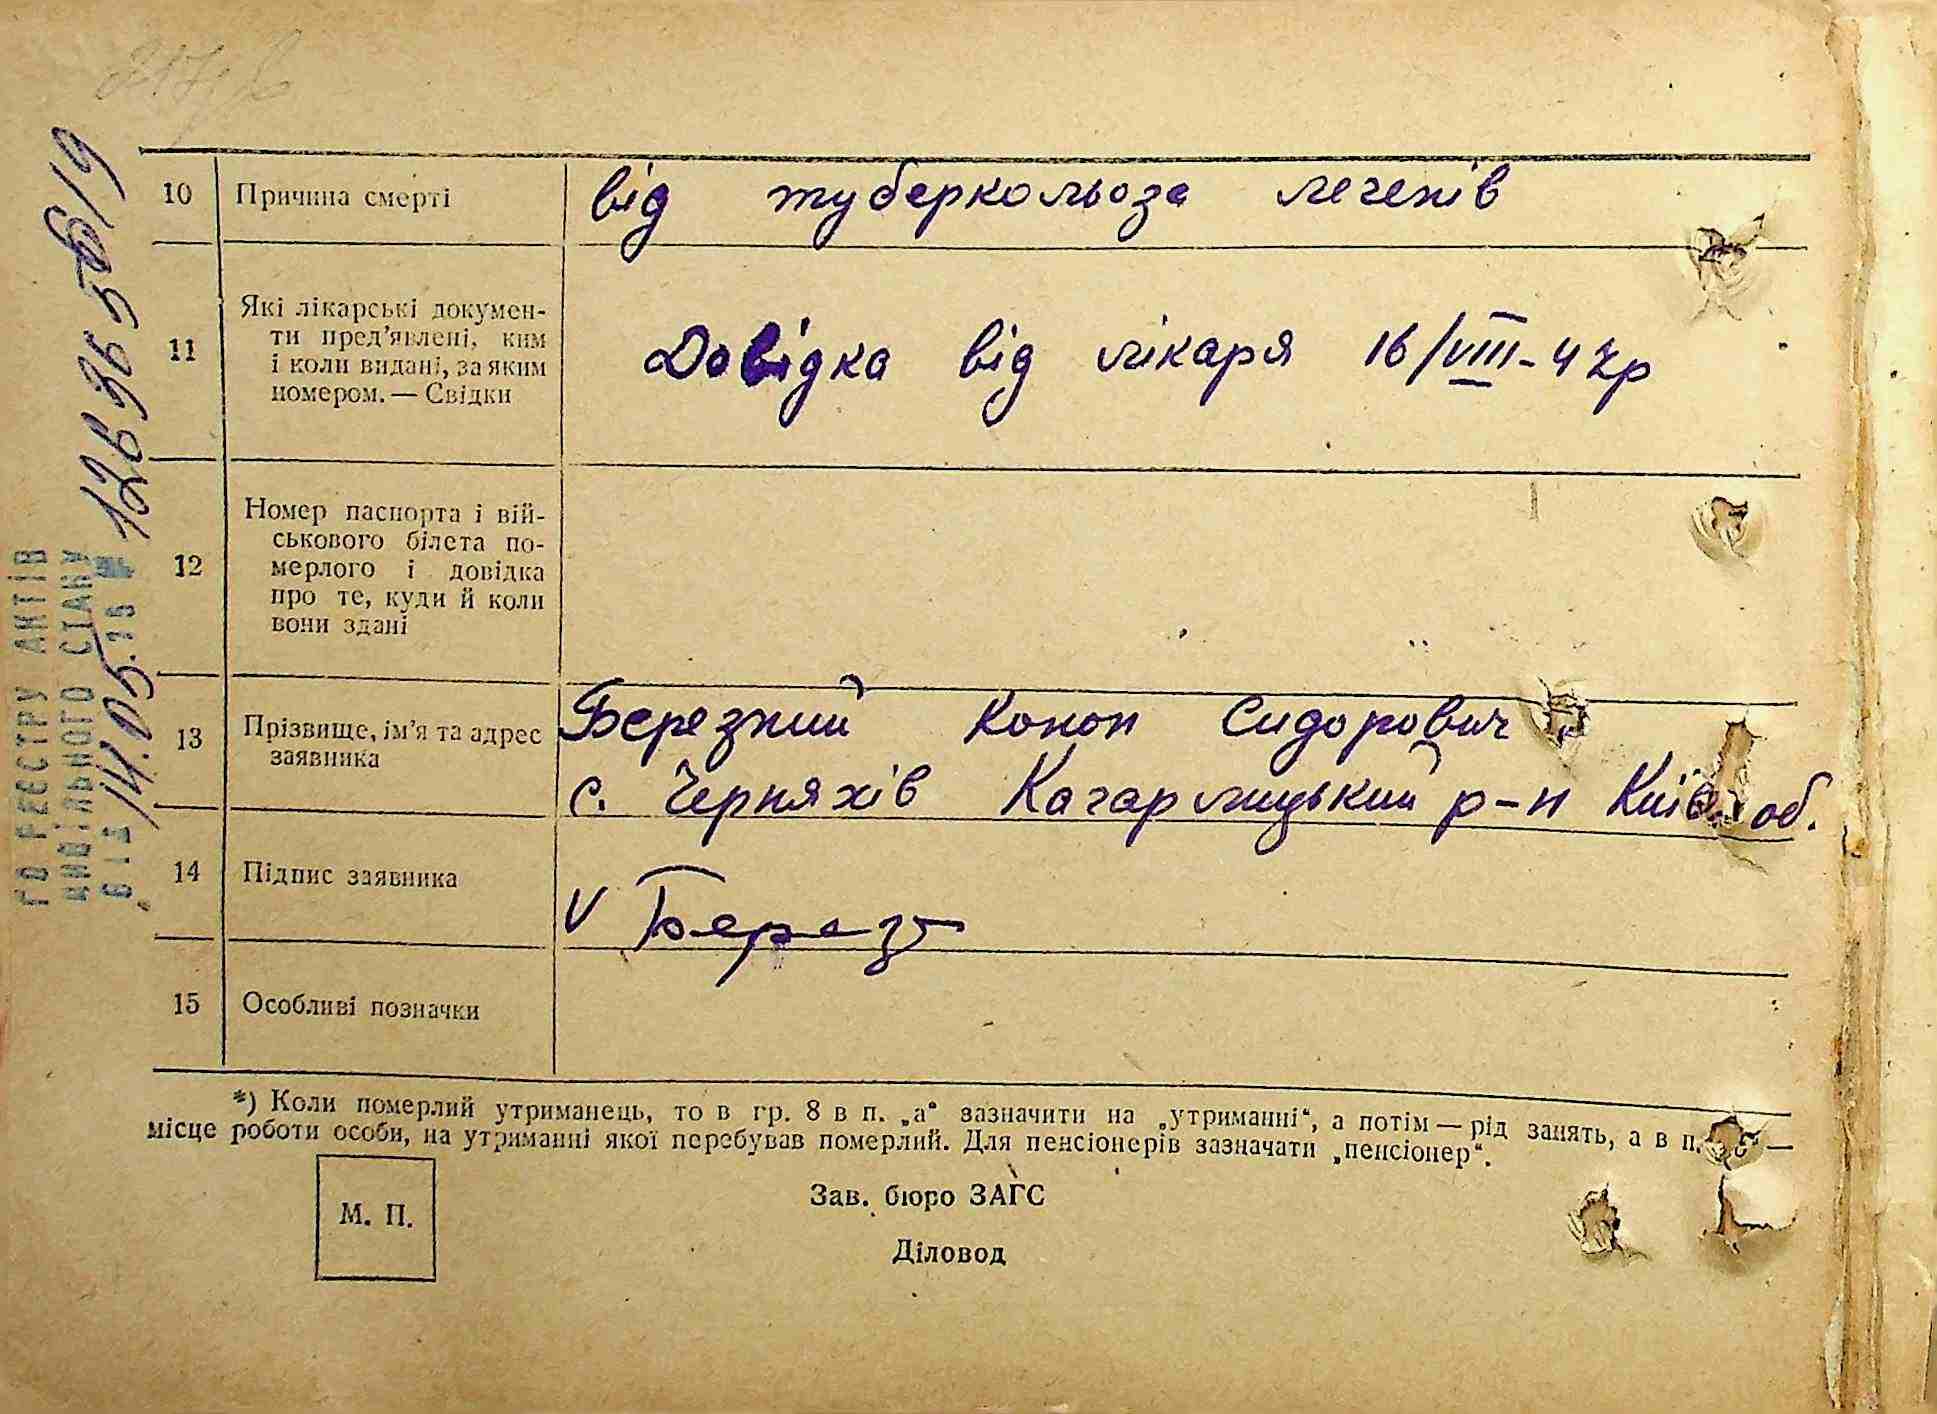 10 Причина смерті від туберкольоза легенів
11 Які лікарські докумен-
ти пред'явлені, ким
і коли видані, за яким
номером. — Свідки
Довідка від лікаря 16/VIII-42р
12 Номер паспорта і вій-
ськового білета по-
мерлого і довідка
про те, куди й коли
вони здані
13 Прізвище, ім'я та адрес
заявника
Березний Конон Сидорович
с. Черняхів Кагарлицький р-н Київ. об.
14 Підпис заявника
V Берез
15 Особливі позначки
*) Коли померлий утриманець, то в гр. 8 в п. „а“ зазначити на „утриманні“, а потім — рід занять, а в п. —
місце роботи особи, на утриманні якої перебував померлий. Для пенсіонерів зазначати „пенсіонер“.
М. П.
Зав. бюро ЗАГС
Діловод
РЕЄСТРУ АКТІВ
ЦИВІЛЬНОГО СТАНУ
14.05.